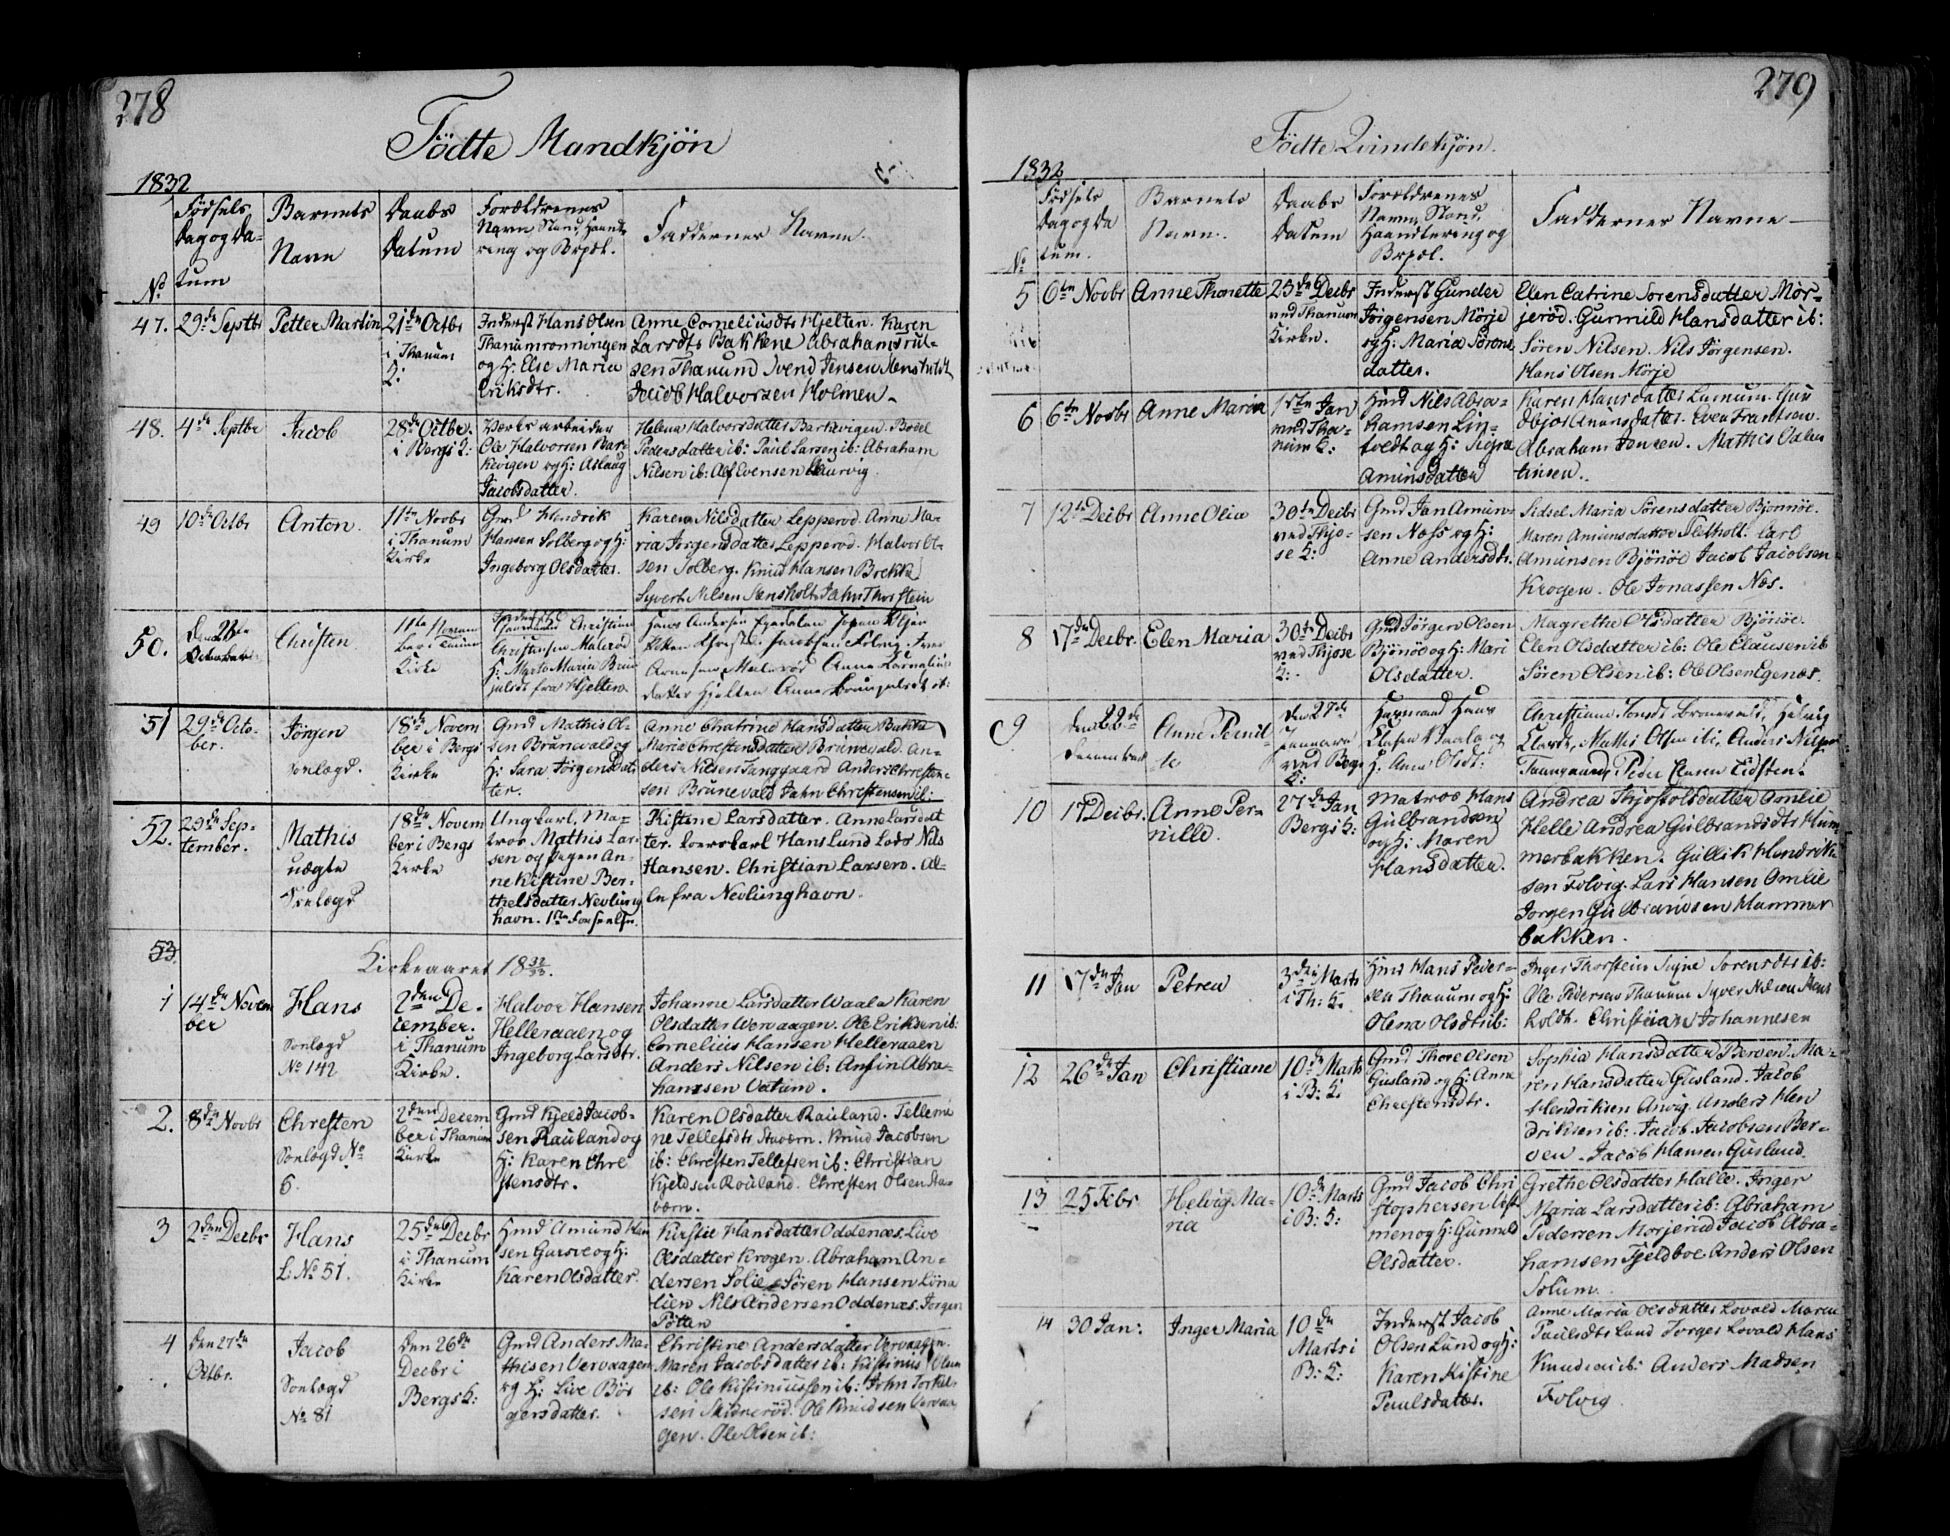 278
Födte Mandkjön
1832
Födsels Dag og Datum
Barnets Navn
Daabs Datum
Forældrenes Navn Stand Haandtering og Bopæl.
Faddernes Navne.
No
47. 29de Septbr Petter Martin 21de Octbr i Thanum K:
Inderst Hans Olsen
Thanumrönningen
og H: Else Maria
Eriksdtr.
Anne Corneliusdtr Hjelten. Karen
Larsdtr Bakkene Abraham
sen Thanum Svend Jensen
Jacob Halvorsen Holmen.
48. 4de Septbr Jacob 28de Octbr. i Bergs K:
Værksarbeider
Ole Halvorsen Bar-
kevigen og H: Aslaug
Jacobsdatter.
Helena Halvorsdatter Barkevigen. Bodel
Pedersdatter ib: Paul Larsen ib: Abraham
Nilsen ib: Alf Evensen Laurvig.
49 10de Octbr Anton. 11te Novbr i Thanum Kirke
Gmd Hendrik
Hansen Solberg og H:
Ingeborg Olsdatter.
Karen Nilsdatter Lepperöd. Anne Ma-
ria Jörgensdatter Lepperöd. Halvor Ol-
sen Solberg. Knud Hansen Brekke
Syvert Nilsen Stensholt Jahn Thorstein
50. Den 28de October Christen 11te Novem ber i Tanum Kirke
Christian
Christensen Maleröd
H: Marte Maria
fra Hjelten.
Hans Andersen
Anne Kornelius
datter Hjelten Anne
51 29de Octo- ber. Jörgen Sonlægd. 18de Novem ber i Bergs Kirke
Gmd Mathis Ol-
sen Brünevald og
H: Sara Jörgensdat
ter.
Anne Chatrine Hansdatter Bakke
Maria Chrestensdatter Brünevald. An-
ders Nilsen Tanggaard Anders Chresten-
sen Brünevald Jahn Chrestensen ib:
52. 29de Sep- tember. Mathis uægte Sönlægd 18de Novem ber i Bergs Kirke
Ungkarl, Ma-
tros Mathis Lar-
sen og Pigen An-
ne Kistine Ber-
thelsdatter Nevlung
havn. 1ste Forseelse.
Kistine Larsdatter. Anne Larsdat
ter. Hans Lund Lods Nils
Hansen. Christian Larsen. Al-
le fra Nevlinghavn.
53.
Kirkeaaret 18 32/33.
1 14de Novem ber Hans Sonlægd No 142 2den De- cember. i Thanum Kirke.
Halvor Hansen
Helleraaen og
Ingeborg Larsdtr.
Johanne Larsdatter Waale Karen
Olsdatter Vervaagen. Ole Eriksen ib:
Cornelius Hansen Helleraaen
Anders Nilsen ib: Anfin Abra-
hamsen Vatum.
2. 8de Novbr Chresten Sonlægd No 6. 2den Decem ber i Thanum Kirke
Gmd Kjeld Jacob-
sen Rauland og
H: Karen Chre
stensdtr.
Karen Olsdatter Rauland. Tellemi
ne Tellefsdtr Staværn. Knud Jacobsen
ib: Chresten Tellefsen ib: Christian
Kjeldsen Rouland. Chresten Olsen Sta-
værn.
3 2den Decbr Hans L: No 51. 25de Decbr i Thanum Kirke
Hmd Amund Han
sen Gurvie og H:
Karen Olsdatter.
Kirstie Hansdatter Oddenæs. Live
Olsdatter Krogen. Abraham An-
dersen Solie Sören Hansen Löna
lien Nils Andersen Oddenæs. Jörgen
Pötten
4 Den 27de Octbr. Jacob Sonlægd No 81 Den 26de Decbr i Bergs K:
Gmd Anders Ma
thisen Vervaagen
og H: Live Bör
gersdatter.
Christine Andersdatter Vervaagen.
Maren Jacobsdatter ib: Kistinus Olsen
ib: Ole Kistiniussen ib: John Torkel-
sen Skidneröd. Ole Knudsen Vervaa
gen. Ole Olsen ib:
279
Födte Qvindekjön.
1832
Födsels Dag og Da tum.
Barnets Navn.
Daabs Datum
Forældrenes Navne, Stand, Haandtering og Bopæl.
Faddernes Navne
No
5 6te Novbr Anne Thonette 23de Decbr ved Thanum Kirke.
Inderst Gunder
Jörgensen Mörje
og H: Maria Sörens
datter.
Elen Catrine Sorensdatter Mör-
jeröd. Gunnild Hansdatter ib:
Sören Nilsen. Nils Jörgensen.
Hans Olsen Mörje
6 6te Novbr Anne Maria 1ste Jan ved Tha- num K:
Hmd Nils Abra-
hamsen Lin-
tvedt og H: Signe
Amunsdatter
Karen Hansdatter Lamum. Guu
dbjor Amunsdatter. Even Frantsen.
Abraham Jonsen. Mathis Valen
tinsen.
7 12te Decbr Anne Olia 30te Decbr ved Thjo- se K:
Gmd Jan Amun-
sen Næss og H:
Anne Andersdtr.
Sidsel Maria Sörensdatter Bjönnöe.
Maren Amunsdatter Sletholt. Carl
Amunsen Bjönöe Jacob Jacobsen
Krogen. Ole Jonassen Næs.
8 17de Decbr. Elen Maria 30te Decbr ved Thjose K:
Gmd Jörgen Olsen
Bjönöe og H: Mari
Olsdatter.
Magrethe Olsdatter Bjönöe.
Elen Olsdatter ib: Ole Clausen ib
Sören Olsen ib: Ole Olsen Egenæs.
9 den 22de December Anne Pernil- le den 27de Januar ved Berg K:
Huusmand Hans
Clasen Vaale og
H: Anne Olsdt:
Christiane Jonsdt Brunevald, Helvig
Clasdt, Mathis Olsen ib:, Anders Nilsen
Taangaard, Peder Clasen Eidsten.
10 17 Decbr. Anne Per- nille. 27de Jan Bergs K:
Matros Hans
Gulbrandsen
og H: Maren
Hansdatter.
Andrea Thjostolsdatter Omlie
Helle Andrea Gulbrandsdtr Ham
merbakken. Gullik Hendrik-
sen Folvig. Lars Hansen Omlie
Jörgen Gulbrandsen Hammer
bakken.
11 17de Jan Petrea 3die Marts i Th: K.
Hmd Hans Peder-
sen Thanum og H:
Olena Olsdtr ib:
Inger Thorstein Signe Sorensdtr ib:
Ole Pedersen Thanum Syver Nilsen Stens
holdt. Christian Johannesen
12 26de Jan Christiane 10de Marts i B: K.
Gmd Thore Olsen
Gusland og H: Anne
Chrestensdtr.
Sophia Hansdatter Berven. Ma-
ren Hansdatter Gusland. Jacob
Hendriksen Anvig. Anders Hen
driksen ib: Jacob Jacobsen Ber-
ven. Jacob Hansen Gusland.
13 25 Febr Helvig Ma- ria 10de Marts i B: K:
Gmd Jacob Chri
stophersen
men og H: Gunnel
Olsdatter.
Grethe Olsdatter Halle. Inger
Maria Larsdatter ib: Abraham
Pedersen Morjeröd Jacob Abra-
hamsen Fjeldboe Anders Olsen
Solum.
14 30 Jan: Inger Maria 10de Marts i B: K:
Inderst Jacob
Olsen Lund og H:
Karen Kistine
Paulsdatter.
Anne Maria Olsdatter Lovald Maren
Paulsdtr Lund Torger Lovald Hans
Knudsen ib: Anders Madsen
Folvig